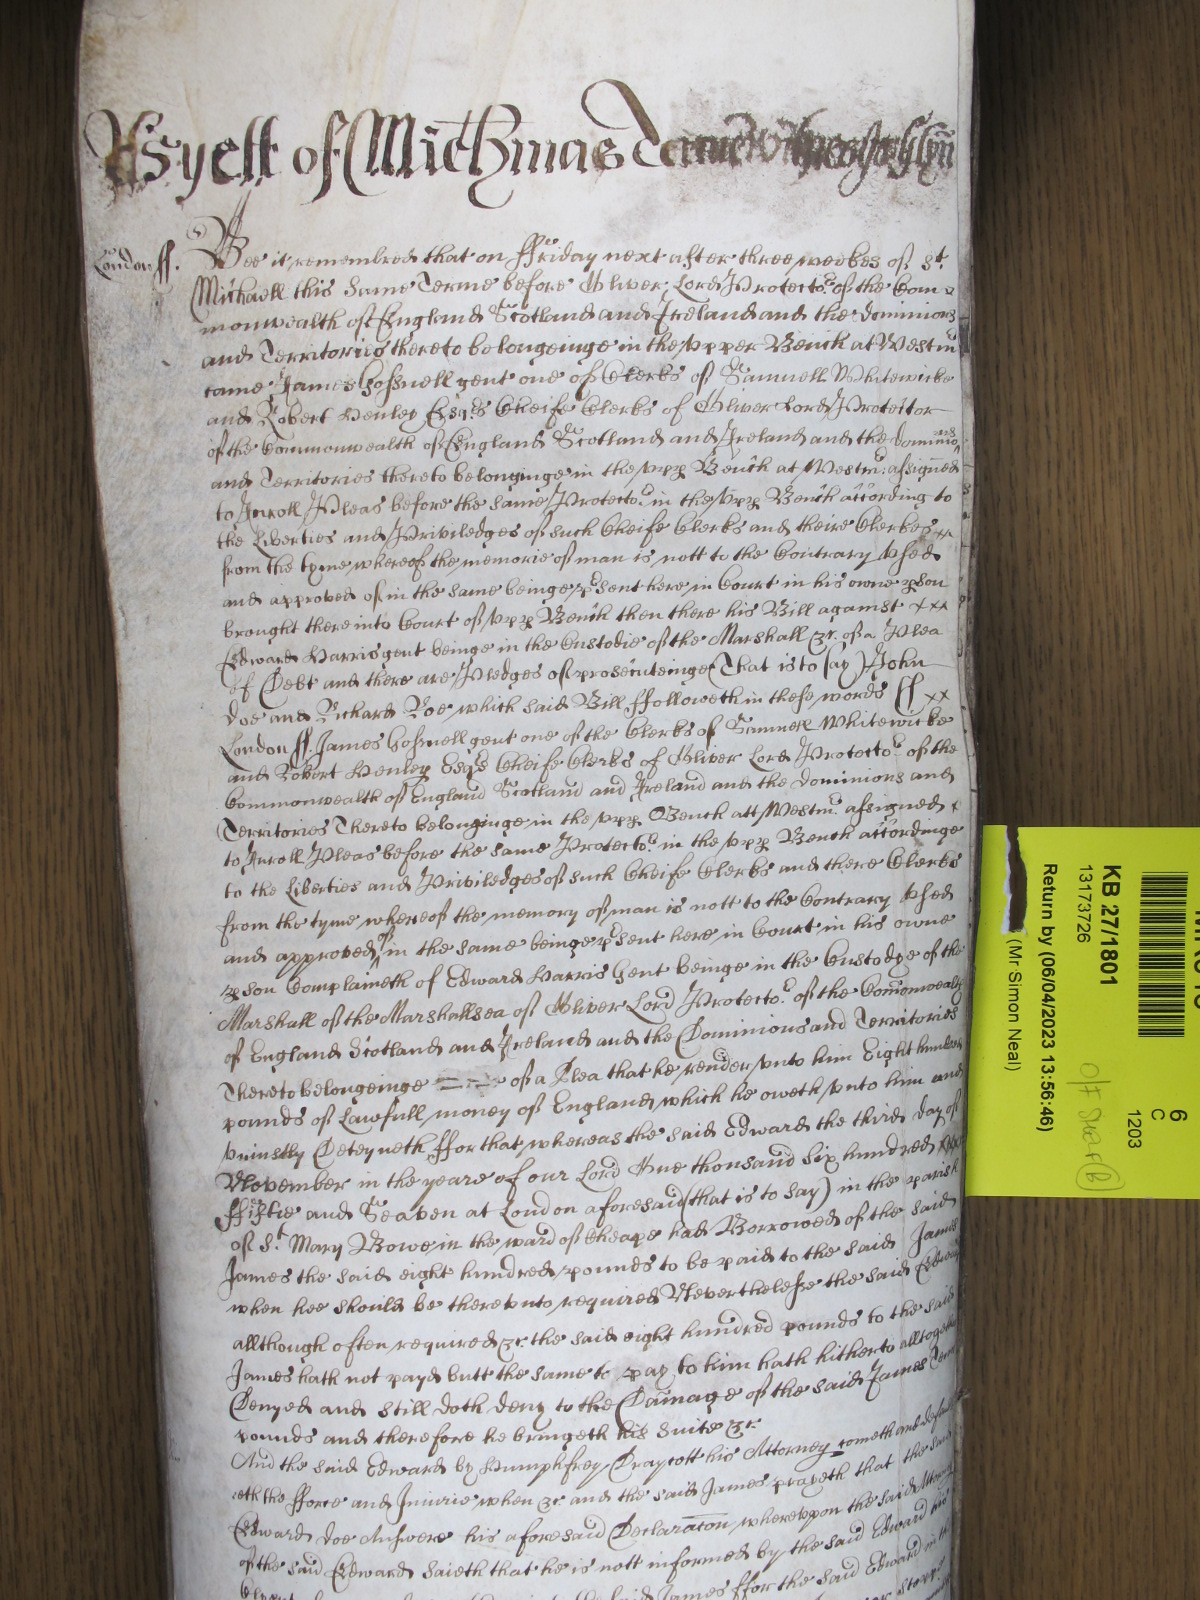 As yett of Michmas Terme
London ss. Bee it remembred that on ffriday next after three weekes of St.
Michaell this same Terme before Oliver Lord Protector of the Com=
monwealth of England Scotland and Ireland and the dominions
and Territories thereto belongeinge in the vpper Bench at Westmr
came James Gosnell gent one of Clerks of Samuell Whitewicke
and Robert Henley Esqrs Cheife Clerks of Oliver Lord Protector
of the Commonwealth of England Scotland and Ireland and the dominions
and Territories thereto belonginge in the vpp Bench at Westmr. assigned
to Inroll Pleas before the same Protector in the vpp Bench according to
the Liberties and Priviledges of such Cheife Clerks and theire Clerkes xx
from the tyme whereof the memorie of man is nott to the Contrary vsed
and approved of in the same beinge psent here in Court in his owne pson
brought there into Court of vpp Bench then there his Bill against xxx
Edward Harris gent beinge in the Custodie of the Marshall &c. of a Plea
of Debt and there are Pledges of prosecuteinge (That is to say) John
Doe and Richard Roe which said Bill ffolloweth in these words ss xx
London ss. James Gosnell gent one of the Clerks of Samuell Whitewicke
and Robert Henley Esqrs Cheife Clerks of Oliver Lord Protector of the
Commonwealth of England Scotland and Ireland and the dominions and
Territories Thereto belonginge in the vpp. Bench att Westmr. assigned x
to Inroll Pleas before the same Protector in the vpp Bench accordinge
to the Liberties and Priviledges of such Cheife Clerks and there Clerks
from the tyme whereof the memory of man is nott to the Contrary vsed
and approved of in the same beinge psent here in Court in his owne
pson Complaineth of Edward Harris Gent beinge in the Custodye of the
Marshall of the Marshallsea of Oliver Lord Protector of the Comonwealth
of England Scotland and Ireland and the Dominions and Territories
Thereto belongeinge of a Plea that he render vnto him Eight hundred
pounds of Lawfull money of England which he oweth vnto him and
vniustly Deteyneth ffor that whereas the said Edward the third day of
November in the yeare of our Lord One thousand six hundred xxx
ffiftie and Seaven at London aforesaid (that is to say) in the parish
of St. Mary Bowe in the ward of Cheape had Borrowed of the said
James the said eight hundred pounds to be paid to the said James
when hee should be there vnto required Neverthelesse the said Edward
allthough often required &c. the said eight hundred pounds to the said
James hath not payd butt the same to pay to him hath hitherto alltogether
Denyed and still doth deny to the Damage of the said James Tenn
pounds and therefore he bringeth his Suite &c.
And the said Edward by Humphfrey Draycott his Attorney cometh and defend
eth the fforce and Iniurie when &c and the said James prayeth that the said
Edward doe Answere his aforesaid Declaracon wherevpon the said Attorney
of the said Edward saieth that he is nott informed by the said Edward his
the said James ffor the said Edward in
KB 27/1801
13173726
Return by (06/04/2023 13:56:46)
(Mr Simon Neal)
6
C
1203